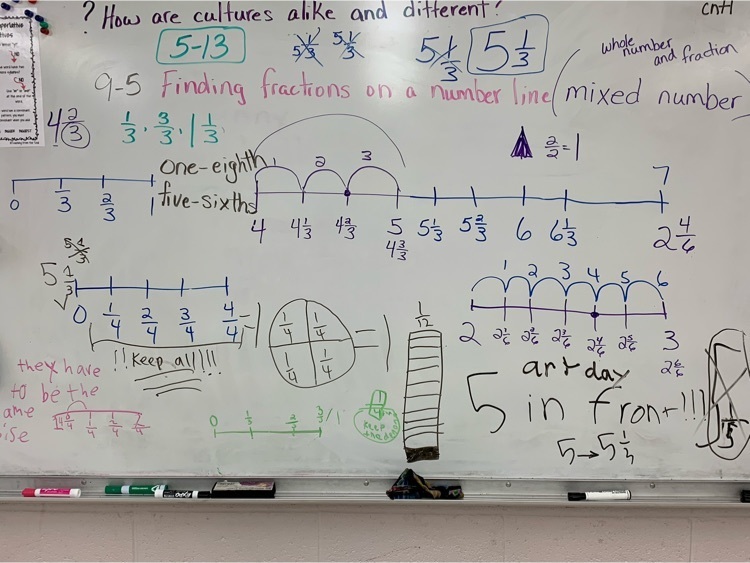 ? How are cultures alike and different?
cntl
5-13
5 1/3
5 1/3
5 1/3
5 1/3
whole number and fraction
9-5 Finding fractions on a number line (mixed number)
4 2/3
1/3, 3/3, 1 1/3
2/2 = 1
0 1/3 2/3 1
one-eighth
five-sixths
1 2 3
7
4 4 1/3 4 2/3 5 5 1/3 5 2/3 6 6 1/3 2 4/6
4 3/3
5 1/3
5 1/3
0 1/4 2/4 3/4 4/4 = 1
!! Keep all!!!!
1/4 1/4
1/4 1/4
= 1
1/12
1 2 3 4 5 6
2 2 1/6 2 2/6 2 3/6 2 4/6 2 5/6 3
2 6/6
they have
to be the
ame
ise
1/4
0 1/3 2/3 3/3 / 1
keep
art day
5 in front!!!
5→5 1/3